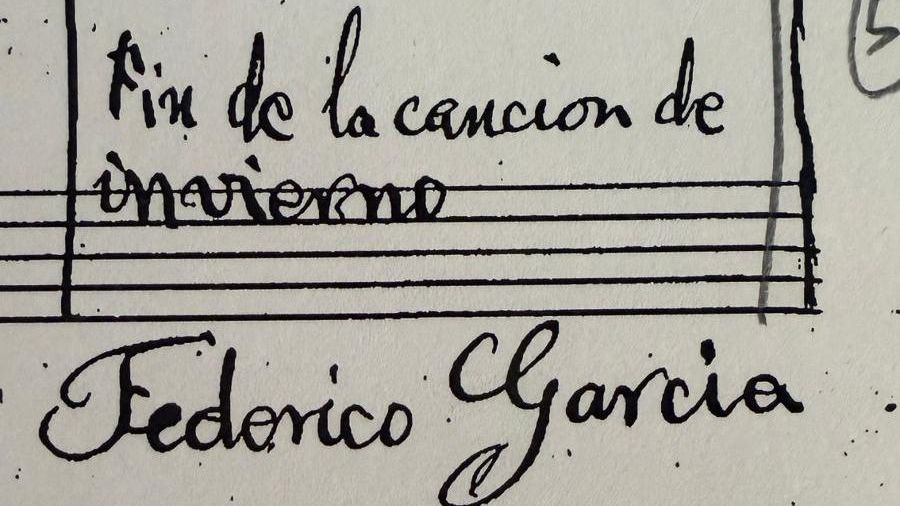 Fin de la cancion de
invierno
Federico Garcia